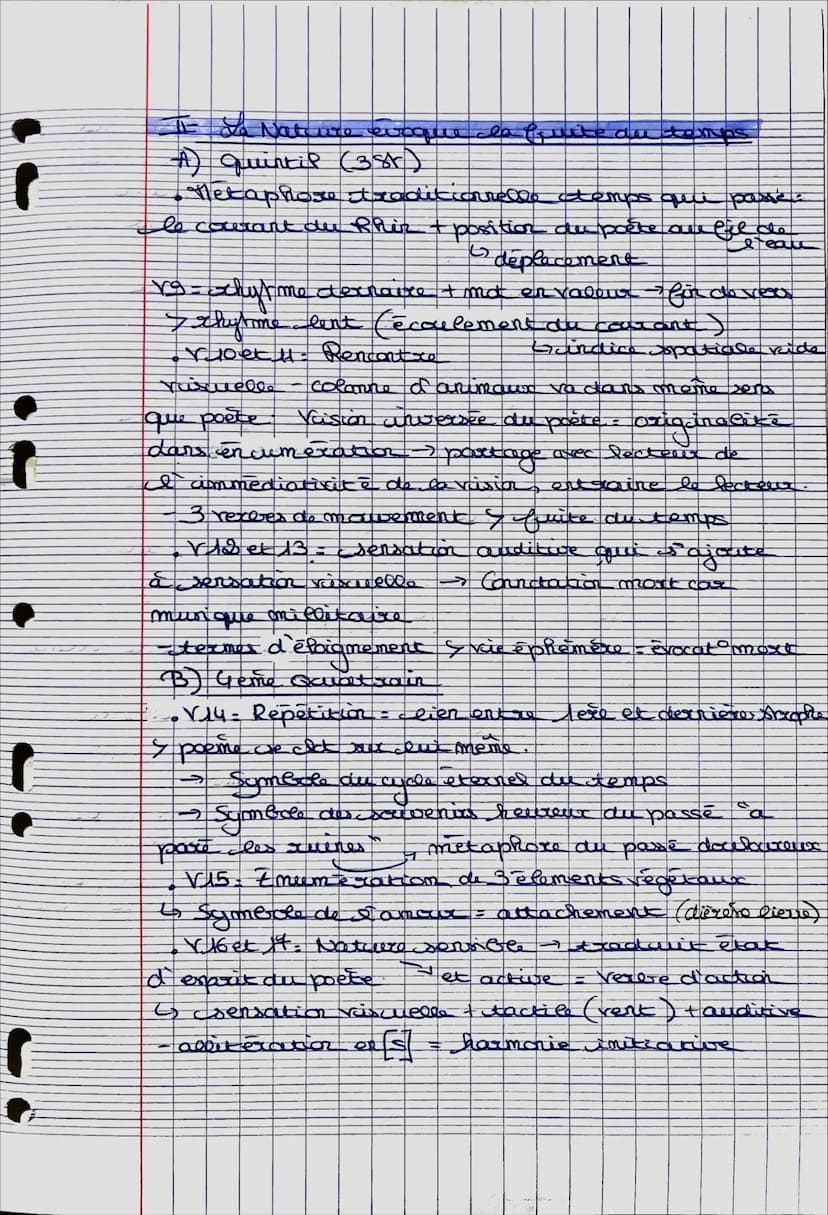 II- La Nature évoque la fuite du temps
A) Quintil (3St)
. Métaphore traditionnelle temps qui passe =
le courant du Rhin + position du poète au fil de
l'eau
↳ déplacement
V9 = rhytme ternaire + mot en valeur → fin de vers
> rhytme lent (écoulement du courant)
. V10 et 11 = Rencontre ↳ indice spatiale vide
visuelle - colonne d'animaux va dans même sens
que poète. Vision inversée du poète = originalité
dans énumération → partage avec lecteur de
l'immédiativité de la vision, entraine le lecteur.
- 3 verbes de mouvement > fuite du temps
. V12 et 13 = sensation auditive qui s'ajoute
à sensation visuelle → Connotation mort car
musique millitaire
- termes d'éloignement > vie éphémère = évocat° mort
B) 4eme Quatrain
. V14 = Répétition = lien entre 1ere et dernière strophe
> poème se clot sur lui même.
→ Symbole du cycle éternel du temps
→ Symbole des souvenirs heureux du passé "a
paré les ruines" → métaphore du passé douloureux
. V15 = Enumération de 3 élements végétaux
↳ Symbole de l'amour = attachement (lierre)
. V16 et 17 = Nature sensible → traduit état
d'esprit du poète. → et active = verbe d'action
↳ sensation visuelle + tactile (vent) + auditive
- allitération en [s] = harmonie initiative